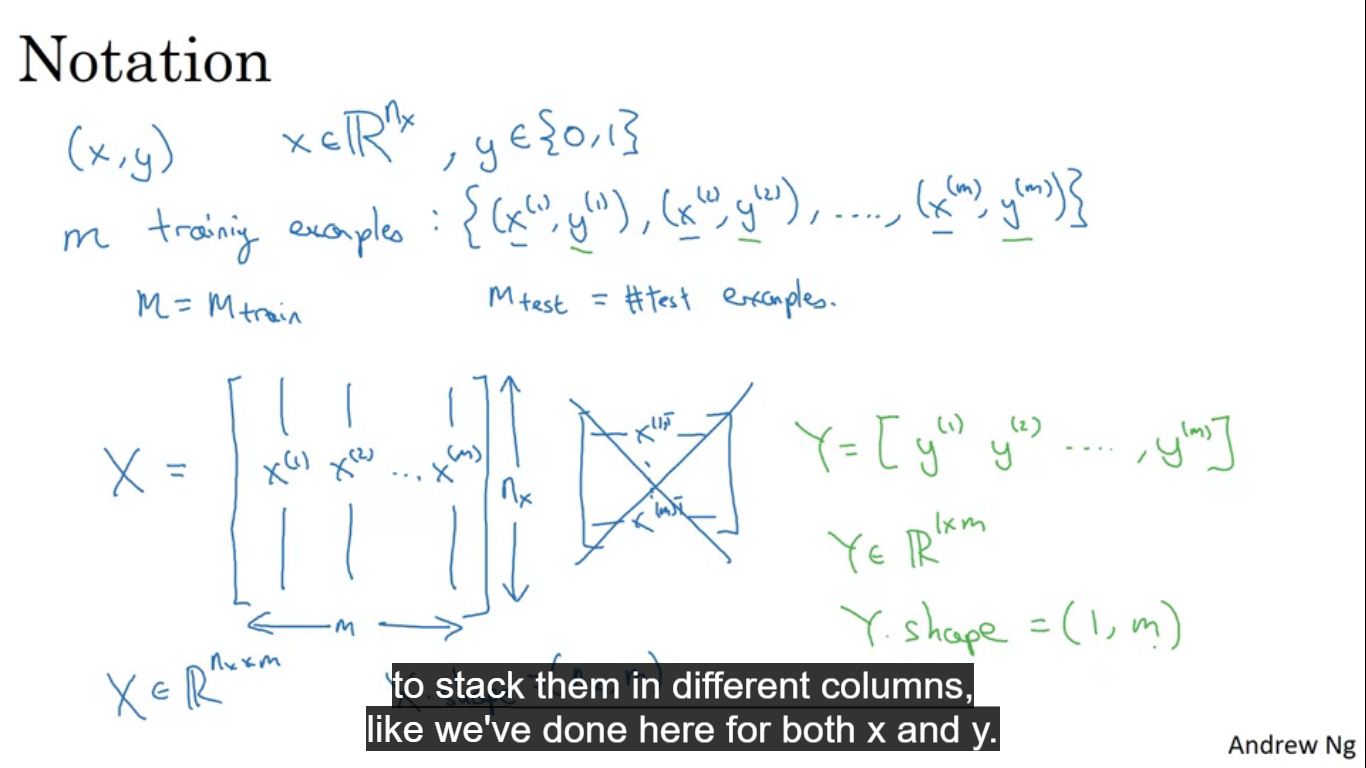 Notation
(x,y) x∈ℝ^{n_x}, y∈{0,1}
m training examples : {(x^{(1)}, y^{(1)}), (x^{(2)}, y^{(2)}), ...., (x^{(m)}, y^{(m)})}
M = M_{train} M_{test} = #test examples.
X = [x^{(1)} x^{(2)} ... x^{(m)}] n_x
m
x^{(1)T}
x^{(m)T}
Y = [y^{(1)} y^{(2)} ...., y^{(m)}]
Y ∈ ℝ^{1×m}
Y.shape = (1, m)
X ∈ ℝ^{n_x × m}
to stack them in different columns,
like we've done here for both x and y.
Andrew Ng